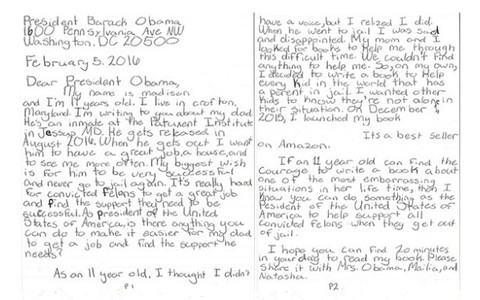 President Barack Obama
1600 Pennsylvania Ave NW
Washington, DC 20500
February 5, 2016
Dear President Obama,
My name is madison
and I'm 11 years old. I live in crofton,
Maryland. I'm writing to you about my dad.
He's an inmate at the Patuxent Institute
in Jessup MD. He gets released in
August 2016. When he gets out I want
him to have a great job, a house, and
to see me more often. My biggest wish
is for him to be very successful
and never go to jail again. It's really hard
for convicted felons to get a great job
and find the support they need to be
successful. As president of the United
States of America, is there anything you
can do to make it easier for my dad
to get a job and find the support he
needs?
As an 11 year old, I thought I didn't
P1
have a voice, but I relized I did.
When he went to jail I was sad
and disappointed. My mom and I
looked for books to help me through
this difficult time. We couldn't find
anything to help me. So, on my own,
I decided to write a book to help
every kid in the world that has
a parent in jail. I wanted other
kids to know they're not alone in
their situation. On December
2015, I launched my book
Its a best seller
on Amazon.
If an 11 year old can find the
courage to write a book about
one of the most embarrassing
situations in her life time, then I
know you can do something as the
President of the United States of
America to help support all
convicted felons when they get out
of jail.
I hope you can find 20 minutes
in your day to read my book. Please
share it with Mrs. Obama, Malia, and
Natasha.
P2